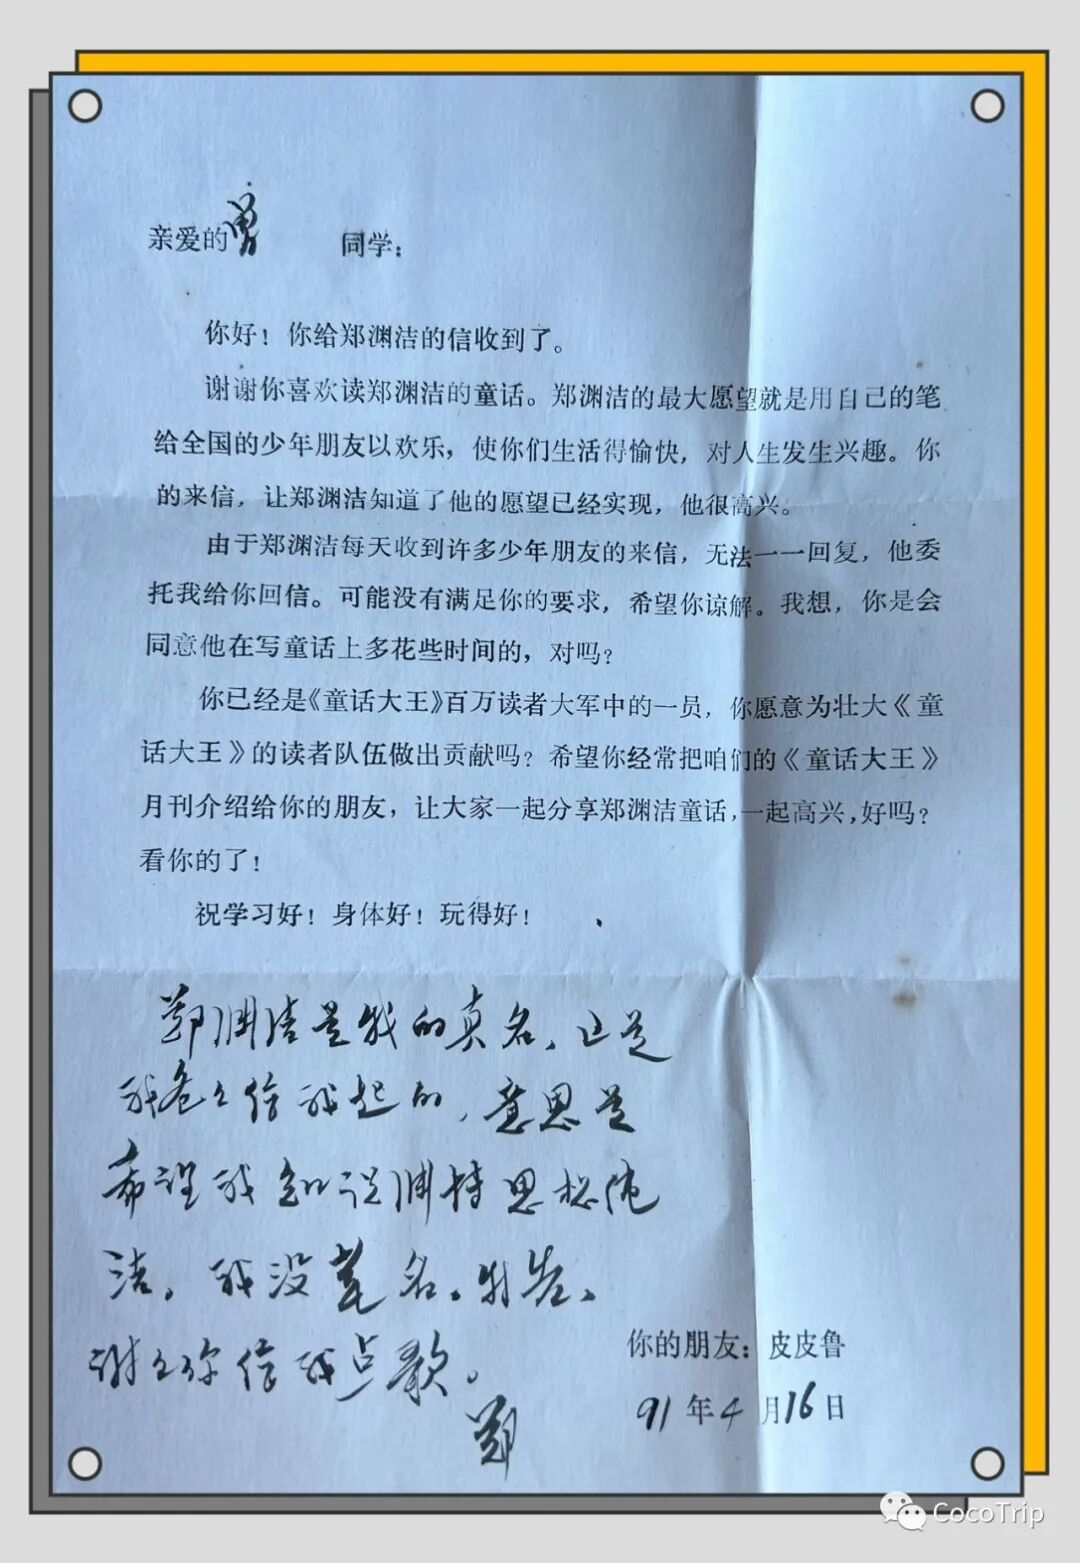 亲爱的曾 同学：
你好！你给郑渊洁的信收到了。
谢谢你喜欢读郑渊洁的童话。郑渊洁的最大愿望就是用自己的笔
给全国的少年朋友以欢乐，使你们生活得愉快，对人生发生兴趣。你
的来信，让郑渊洁知道了他的愿望已经实现，他很高兴。
由于郑渊洁每天收到许多少年朋友的来信，无法一一回复，他委
托我给你回信。可能没有满足你的要求，希望你谅解。我想，你是会
同意他在写童话上多花些时间的，对吗？
你已经是《童话大王》百万读者大军中的一员，你愿意为壮大《童
话大王》的读者队伍做出贡献吗？希望你经常把咱们的《童话大王》
月刊介绍给你的朋友，让大家一起分享郑渊洁童话，一起高兴，好吗？
看你的了！
祝学习好！身体好！玩得好！
郑渊洁是我的真名、这是
我爸爸给我起的，意思是
希望我知识渊博思想纯
洁，我没笔名。特告、
谢谢你给我点歌。
郑
你的朋友：皮皮鲁
91年4月16日
CocoTrip